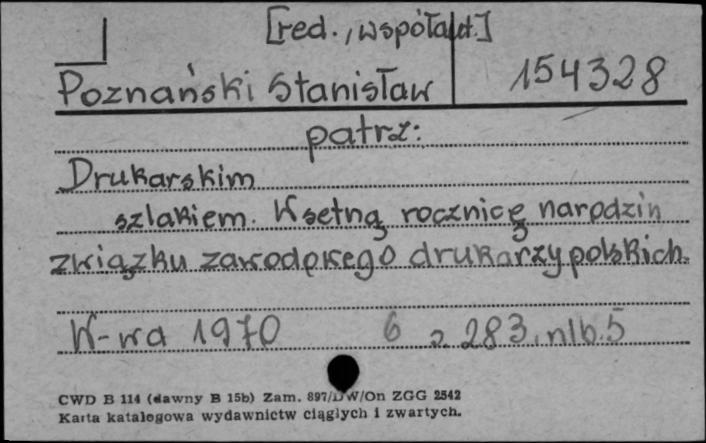 [red., współaut.]
Poznański Stanisław 154328
patrz:
Drukarskim
szlakiem. W setną rocznicę narodzin
związku zawodowego drukarzy polskich.
W-wa 1970 6 s. 283, nlb. 5
CWD B 114 (dawny B 15b) Zam. 897/DW/On ZGG 2542
Karta katalogowa wydawnictw ciągłych i zwartych.